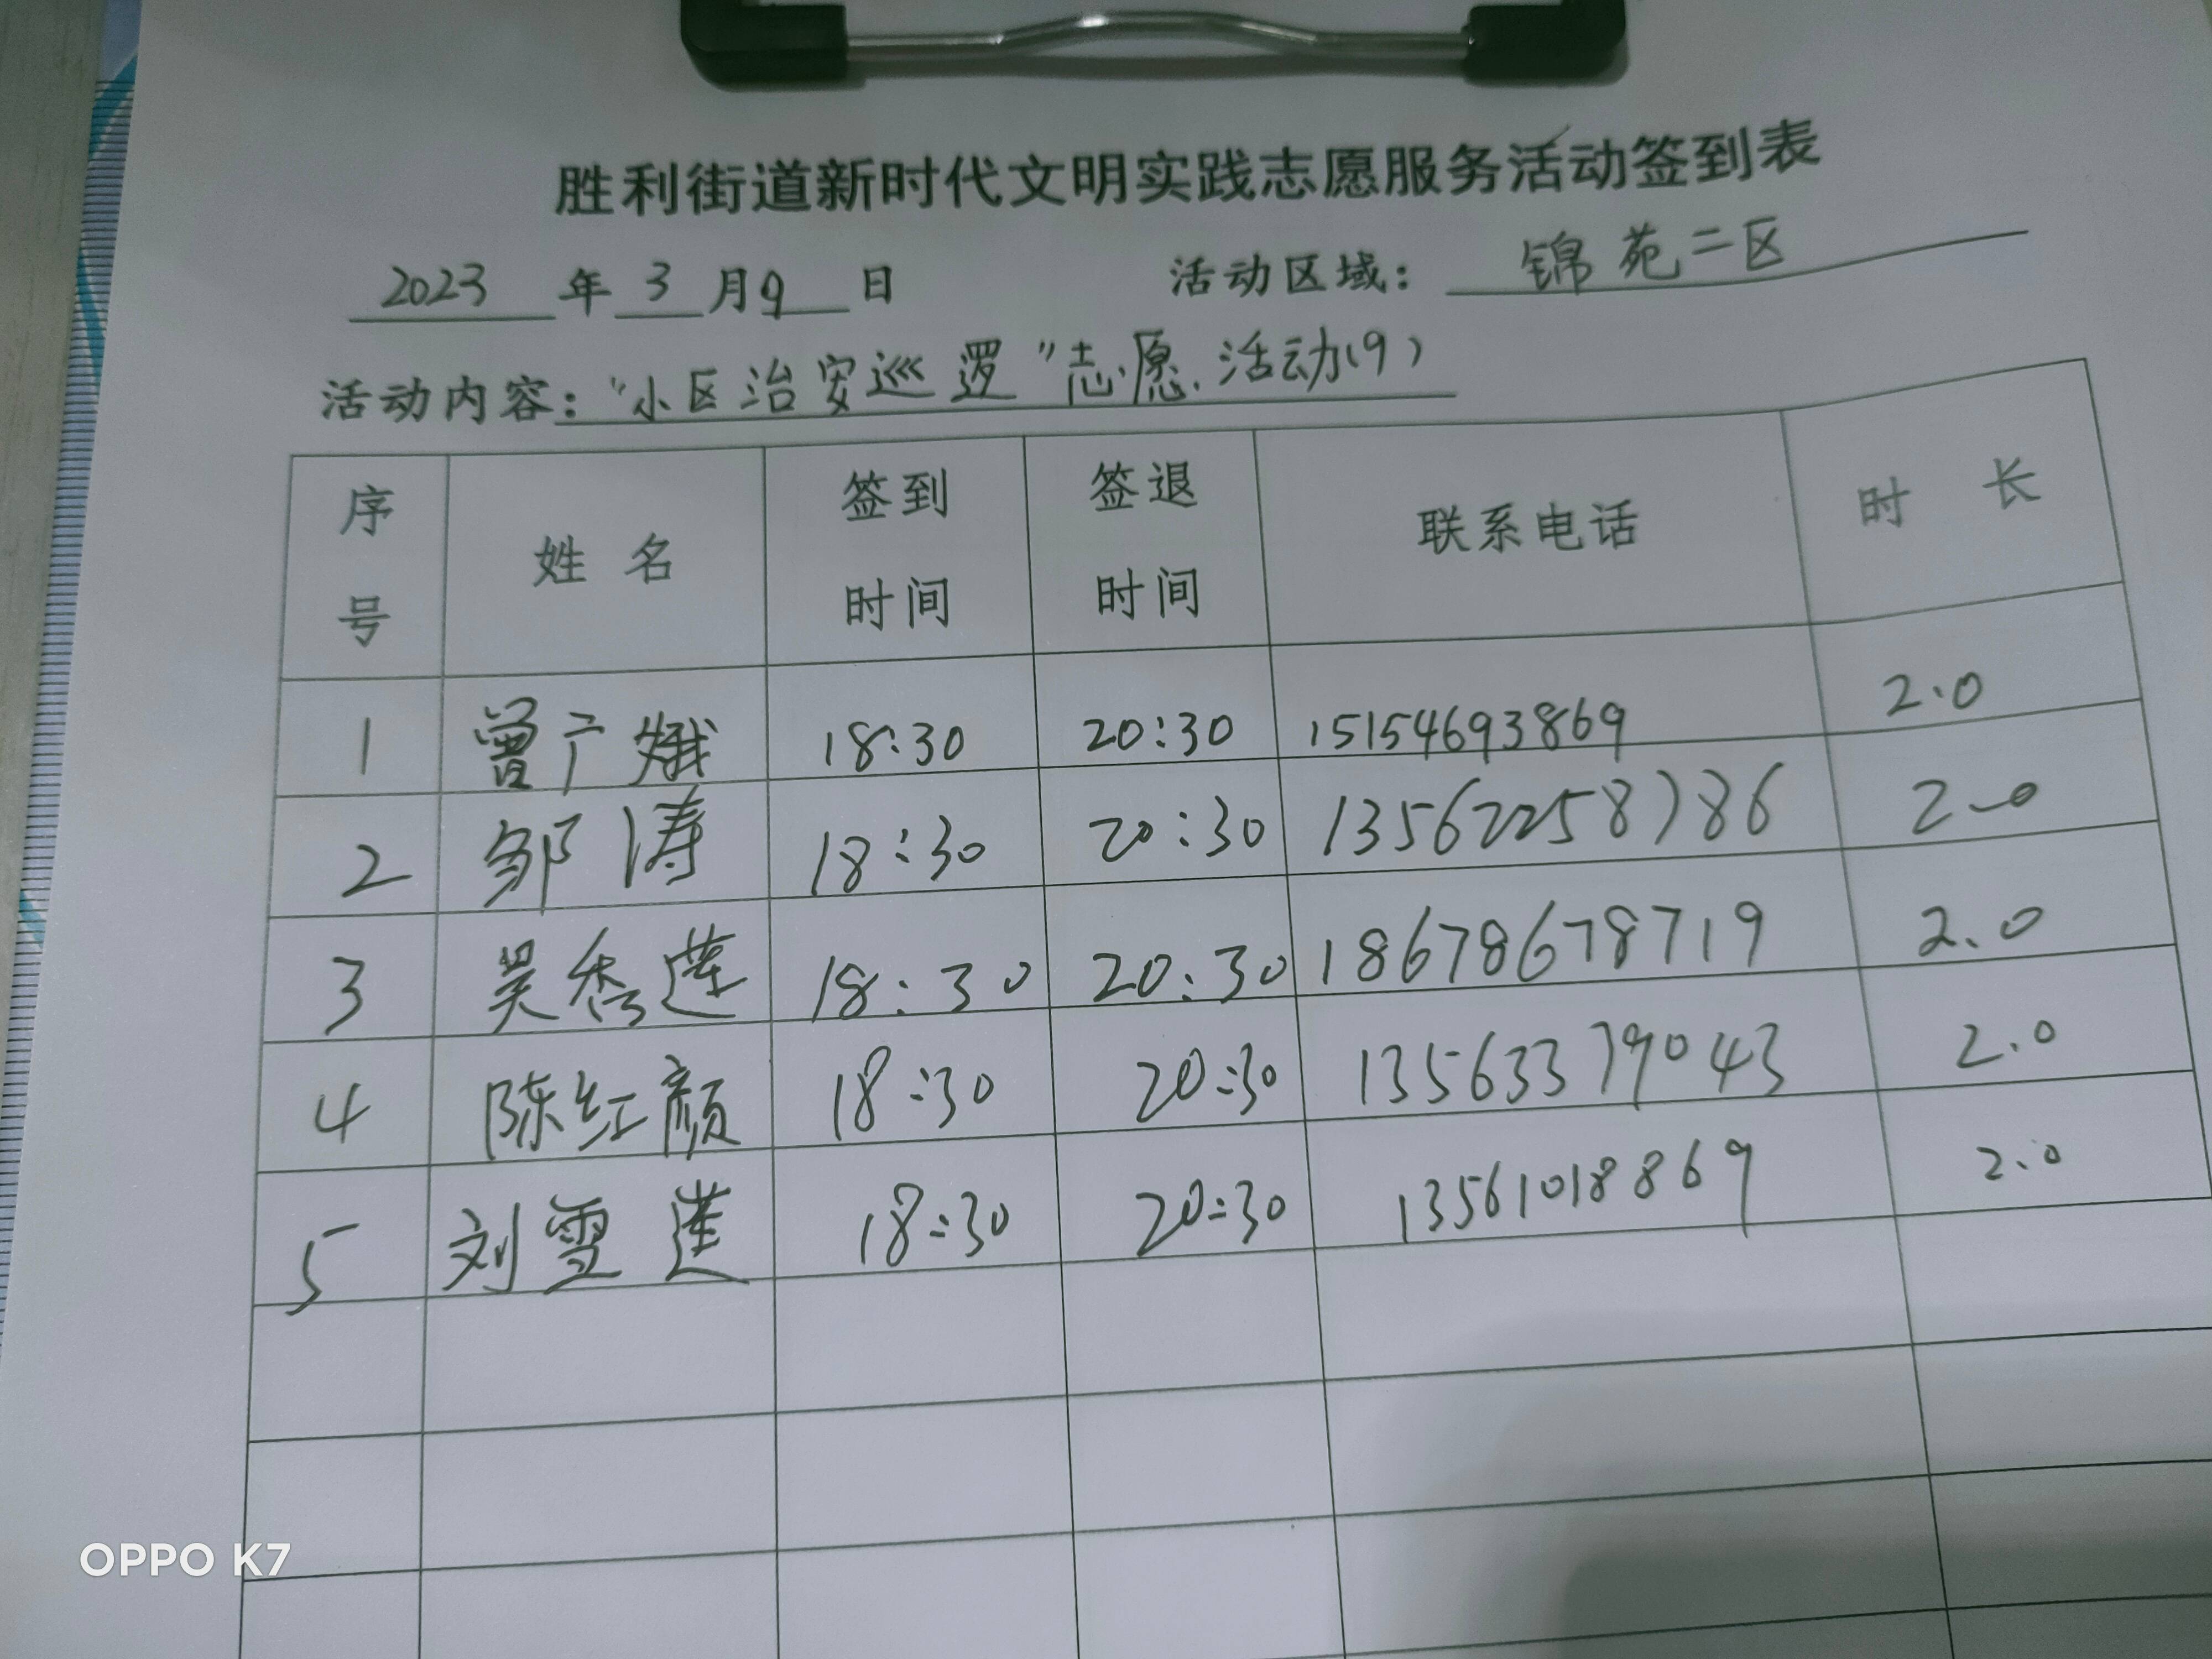 胜利街道新时代文明实践志愿服务活动签到表
2023 年 3 月 9 日 活动区域： 锦苑二区
活动内容："小区治安巡逻"志愿活动(9)
序号 姓名 签到时间 签退时间 联系电话 时长
1 曾广娥 18:30 20:30 15154693869 2.0
2 邹涛 18:30 20:30 13562258786 2.0
3 吴秀莲 18:30 20:30 18678678719 2.0
4 陈红颜 18:30 20:30 13563379043 2.0
5 刘雪莲 18:30 20:30 13561018869 2.0
OPPO K7